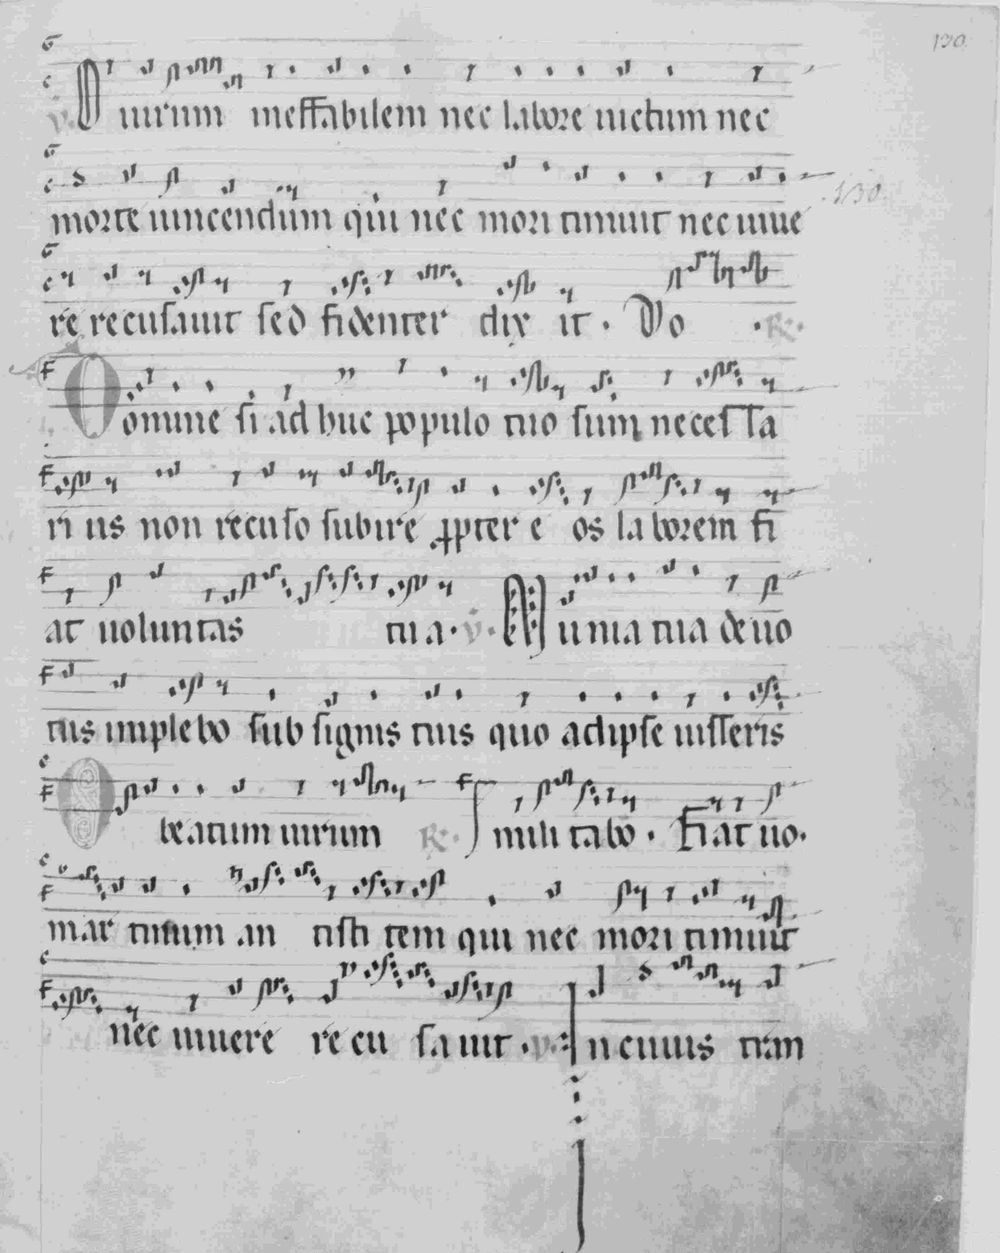 130
O uirum ineffabilem nec labore uictum nec
morte uincendum qui nec mori timuit nec uiue
130
re recusauit sed fidenter dix it. Do .R.
Domine si ad huc populo tuo sum necessa
ri us non recuso subire ꝓpter e os la borem fi
at uoluntas tu a. v. M unia tua deuo
tus implebo sub signis tuis quo adipse iusseris
O beatum uirum R. mili tabo. Fiat uo.
mar tinum an tisti tem qui nec mori timuit
nec uiuere re cu sa uit. v. I n cuius tran